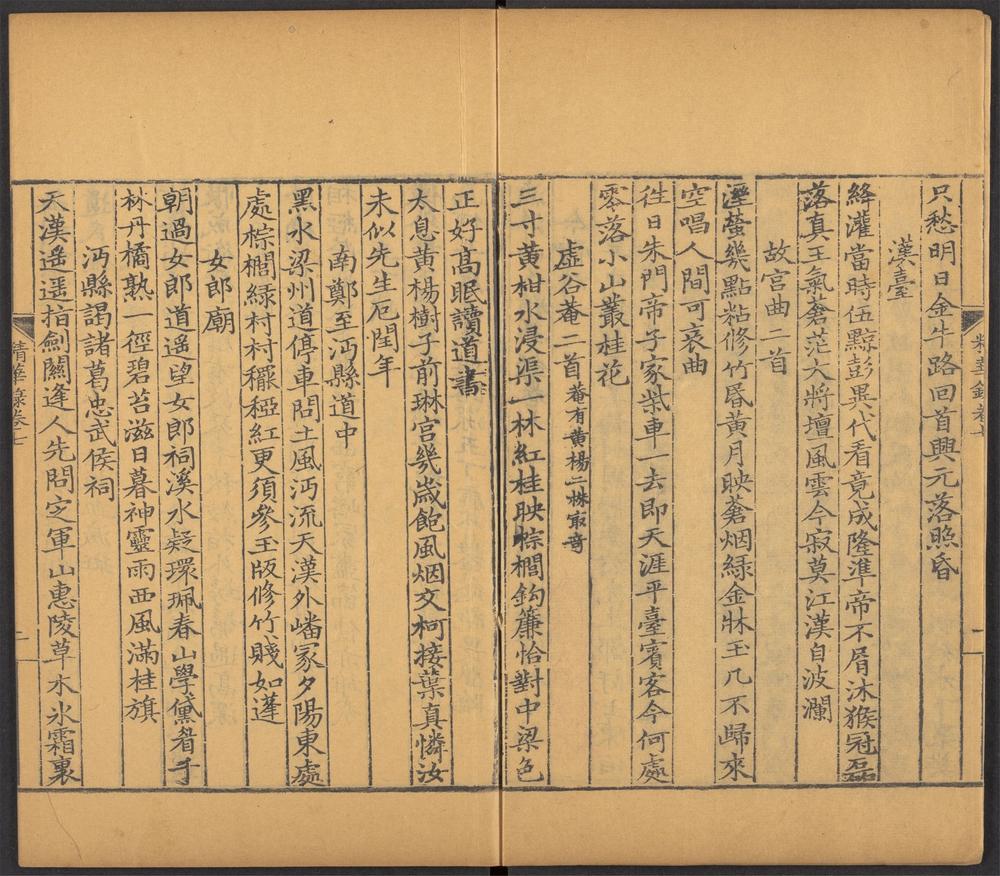 只愁明日金牛路回首興元落照昏
漢臺
絳灌當時伍黥彭異代看竟成隆準帝不屑沐猴冠磊
落真王氣蒼茫大將壇風雲今寂莫江漢自波瀾
故宮曲二首
溼螢幾點粘修竹昏黃月映蒼烟緑金牀玉几不歸來
空唱人間可哀曲
徃日朱門帝子家柴車一去即天涯平臺賓客今何處
零落小山叢桂花
虛谷菴二首菴有黄楊二株㝡竒
三寸黄柑水浸渠一林紅桂映棕櫚鈎簾恰對中梁色
正好髙眠讀道書
太息黄楊樹子前琳宫幾歲飽風烟交柯接葉真憐汝
未似先生厄閏年
南鄭至沔縣道中
黑水梁州道停車問土風沔流天漢外嶓冡夕陽東處
處棕櫚緑村村䆉稏紅更須參玉版修竹賤如蓬
女郎廟
朝過女郎道遥望女郎祠溪水疑環珮春山學黛眉千
林丹橘熟一徑碧苔滋日暮神靈雨西風滿桂旗
沔縣謁諸葛忠武侯祠
天漢遥遥指劍關逢人先問定軍山惠陵草木氷霜裏
精華録卷七
二